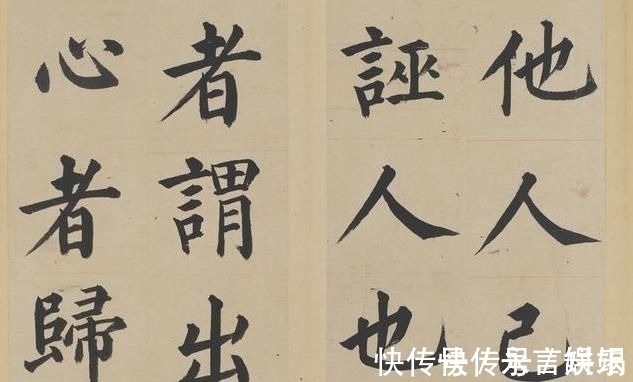 他人已
誣人也
者謂出
心者歸
快传